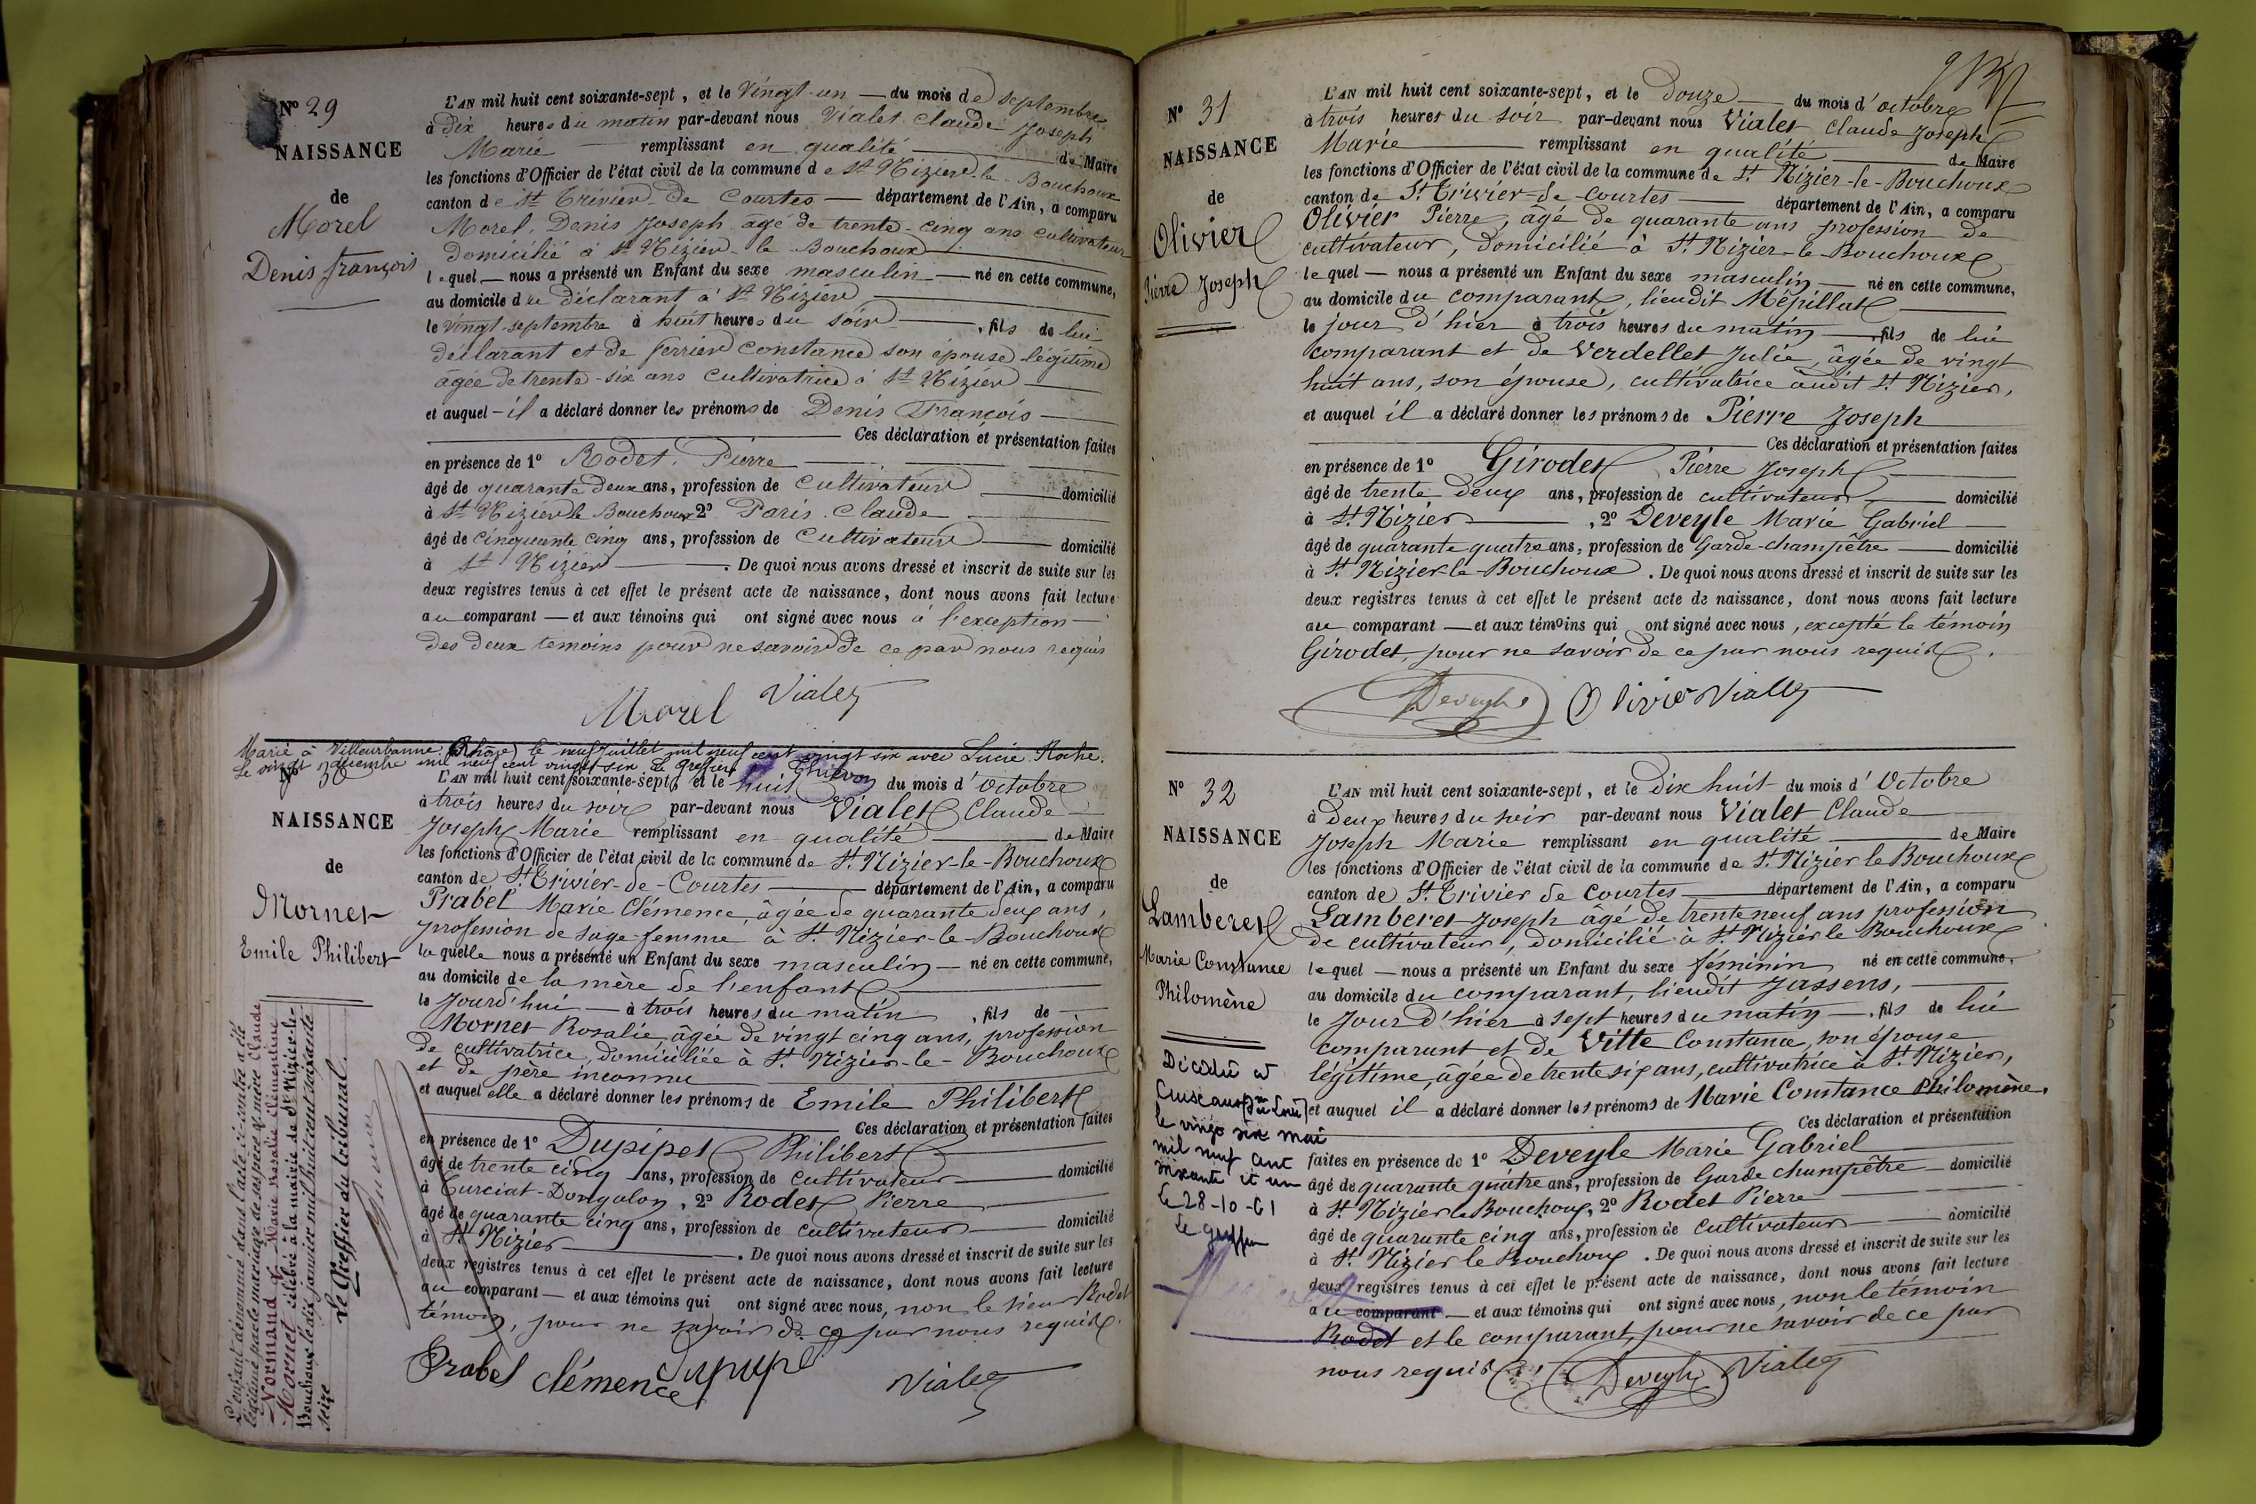 N° 29
NAISSANCE
de
Morel
Denis françois
L'AN mil huit cent soixante-sept, et le Vingt-un — du mois de septembre
à dix heures du matin par-devant nous Vialet Claude Joseph
Marie — remplissant en qualité — de Maire
les fonctions d'Officier de l'état civil de la commune de St Nizier-le-Bouchoux
canton de St Trivier-de Courtes — département de l'Ain, a comparu
Morel Denis Joseph âgé de trente-cinq ans cultivateur
domicilié à St Nizier-le Bouchoux
lequel — nous a présenté un Enfant du sexe masculin — né en cette commune,
au domicile du déclarant à St Nizier
le vingt septembre à huit heures du soir —, fils de lui
déclarant et de ferrier Constance son épouse légitime
âgée de trente-six ans cultivatrice à St Nizier —
et auquel — il a déclaré donner les prénoms de Denis François —
— Ces déclaration et présentation faites
en présence de 1° Rodet Pierre —
âgé de quarante deux ans, profession de Cultivateur — domicilié
à St Nizier le Bouchoux 2° Paris Claude —
âgé de cinquante cinq ans, profession de Cultivateur — domicilié
à St Nizier —. De quoi nous avons dressé et inscrit de suite sur les
deux registres tenus à cet effet le présent acte de naissance, dont nous avons fait lecture
au comparant — et aux témoins qui ont signé avec nous à l'exception —
des deux temoins pour ne savoir de ce par nous requis
Morel Vialet
Marié à Villeurbanne (Rhône) le neuf Juillet mil neuf cent vingt six avec Lucie Roche.
Le vingt décembre mil neuf cent vingt six Le greffier
N° 30
NAISSANCE
de
Mornet
Emile Philibert
L'enfant dénommé dans l'acte ci-contre a été
légitimé par le mariage de ses père & mère Claude
Normand & Marie Rosalie Clémentine
Mornet célébré à la mairie de St Nizier-le-
Bouchoux le dix janvier mil huit cent soixante
seize
Le Greffier du tribunal.
L'AN mil huit cent soixante-sept, et le huit du mois d'Octobre
à trois heures du soir par-devant nous Vialet Claude
Joseph Marie remplissant en qualité — de Maire
les fonctions d'Officier de l'état civil de la commune de St Nizier-le-Bouchoux
canton de St Trivier-de-Courtes — département de l'Ain, a comparu
Prabel Marie Clémence, âgée de quarante deux ans,
profession de sage-femme à St Nizier-le-Bouchoux
laquelle nous a présenté un Enfant du sexe masculin — né en cette commune,
au domicile de la mère de l'enfant —
le Jourd'hui — à trois heures du matin, fils de —
Mornet Rosalie, âgée de vingt cinq ans, profession
de cultivatrice, domiciliée à St Nizier-le-Bouchoux
et de père inconnu —
et auquel elle a déclaré donner les prénoms de Emile Philibert
— Ces déclaration et présentation faites
en présence de 1° Dupipet Philibert
âgé de trente cinq ans, profession de cultivateur — domicilié
à Curciat-Dongalon, 2° Rodet Pierre —
âgé de quarante cinq ans, profession de cultivateur — domicilié
à St Nizier —. De quoi nous avons dressé et inscrit de suite sur les
deux registres tenus à cet effet le présent acte de naissance, dont nous avons fait lecture
au comparant — et aux témoins qui ont signé avec nous, non le sieur Rodet
témoin, pour ne savoir de ce par nous requis.
Prabel Clémence Dupipet Vialet
N° 31
NAISSANCE
de
Olivier
Pierre Joseph
L'AN mil huit cent soixante-sept, et le douze — du mois d'octobre
à trois heures du soir par-devant nous Vialet Claude Joseph
Marie — remplissant en qualité — de Maire
les fonctions d'Officier de l'état civil de la commune de St Nizier-le-Bouchoux
canton de St Trivier-de-Courtes — département de l'Ain, a comparu
Olivier Pierre, âgé de quarante ans profession de
cultivateur, domicilié à St Nizier-le-Bouchoux
lequel — nous a présenté un Enfant du sexe masculin — né en cette commune,
au domicile du comparant, lieudit Mépillat —
le jour d'hier à trois heures du matin —, fils de lui
comparant et de Verdellet Julie, âgée de vingt
huit ans, son épouse, cultivatrice audit St Nizier,
et auquel il a déclaré donner les prénoms de Pierre Joseph
— Ces déclaration et présentation faites
en présence de 1° Girodet Pierre Joseph —
âgé de trente deux ans, profession de cultivateur — domicilié
à St Nizier —, 2° Deveyle Marie Gabriel —
âgé de quarante quatre ans, profession de Garde-champêtre — domicilié
à St Nizier-le-Bouchoux. De quoi nous avons dressé et inscrit de suite sur les
deux registres tenus à cet effet le présent acte de naissance, dont nous avons fait lecture
au comparant — et aux témoins qui ont signé avec nous, excepté le témoin
Girodet, pour ne savoir de ce par nous requis.
Deveyle Olivié Viallet
N° 32
NAISSANCE
de
Lamberet
Marie Constance
Philomène
Décédée à
Cuiseaux
le vingt six mai
mil neuf cent
soixante et un
le 28-10-61
Le greffier
L'AN mil huit cent soixante-sept, et le Dix huit du mois d'Octobre
à Deux heures du soir par-devant nous Vialet Claude —
Joseph Marie remplissant en qualité — de Maire
les fonctions d'Officier de l'état civil de la commune de St Nizier le Bouchoux
canton de St Trivier de Courtes — département de l'Ain, a comparu
Lamberet Joseph âgé de trente neuf ans profession
de cultivateur, domicilié à St Nizier le Bouchoux
lequel — nous a présenté un Enfant du sexe féminin né en cette commune,
au domicile du comparant, lieudit Jassens, —
le Jour d'hier à sept heures du matin —, fils de lui
comparant et de Vitte Constance, son épouse
légitime, âgée de trente six ans, cultivatrice à St Nizier,
et auquel il a déclaré donner les prénoms de Marie Constance Philomène.
— Ces déclaration et présentation
faites en présence de 1° Deveyle Marie Gabriel
âgé de quarante quatre ans, profession de Garde champêtre — domicilié
à St Nizier le Bouchoux, 2° Rodet Pierre —
âgé de quarante cinq ans, profession de cultivateur — domicilié
à St Nizier le Bouchoux. De quoi nous avons dressé et inscrit de suite sur les
deux registres tenus à cet effet le présent acte de naissance, dont nous avons fait lecture
au comparant — et aux témoins qui ont signé avec nous, non le témoin
Rodet et le comparant, pour ne savoir de ce par
nous requis. Deveyle Vialet